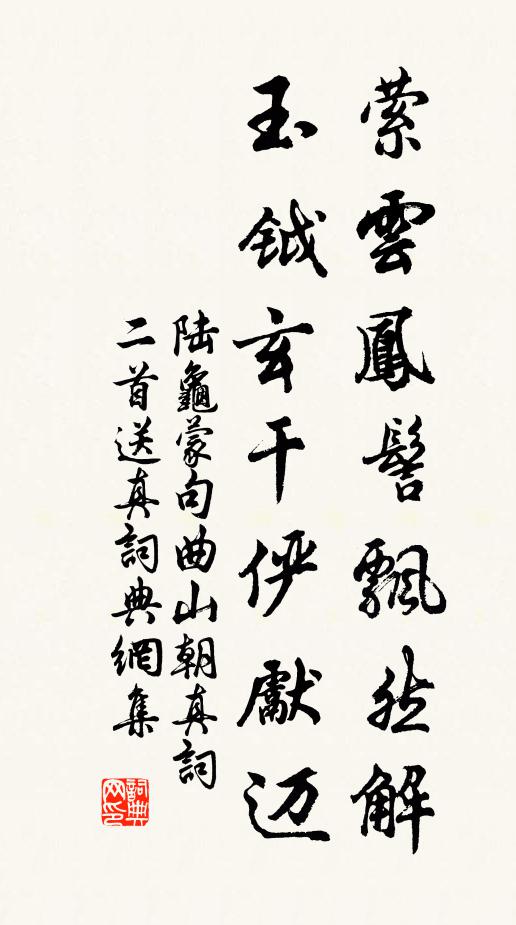 萦雲鳳髻飄然解
玉鉞玄干俨獻迈
陆龜蒙句曲山朝真詞
二首送真詞典網集
詞典
网印